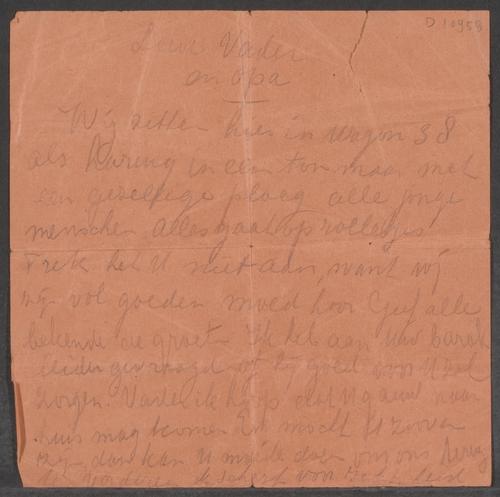 D 10958
Lieve Vader
en Opa
Wij zitten hier in wagon 38
als Haring in een ton maar met
een gezellige ploeg alle jonge
menschen Alles gaat op rolletjes
Trek het U niet aan, want wij
zijn vol goeden moed hoor Geef alle
bekende de groeten Ik heb aan uw barak
leider gevraagd of hij goed voor U zal
zorgen. Vader ik hoop dat U gauw naar
huis mag komen En mocht het zoover
zijn dan kan U